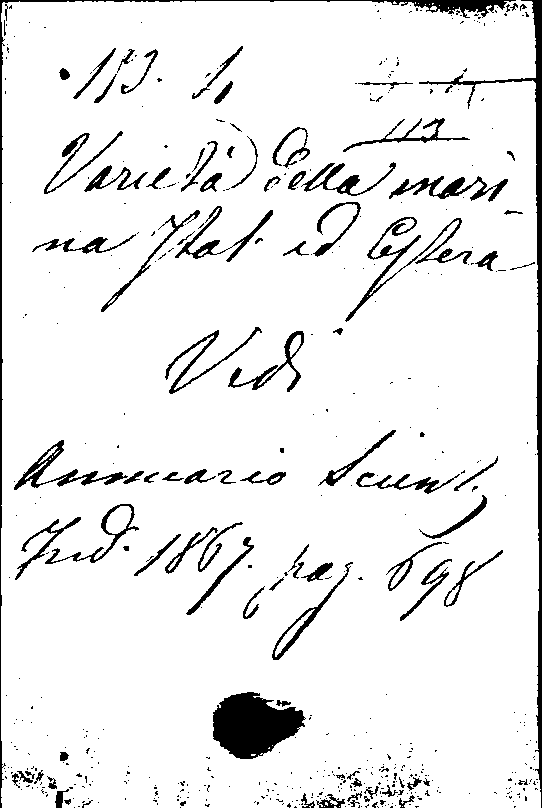 113. 1,
113
Varietà della mari-
na Ital. ed Estera
Vedi
Annuario Scient.
Ind. 1867. pag. 698